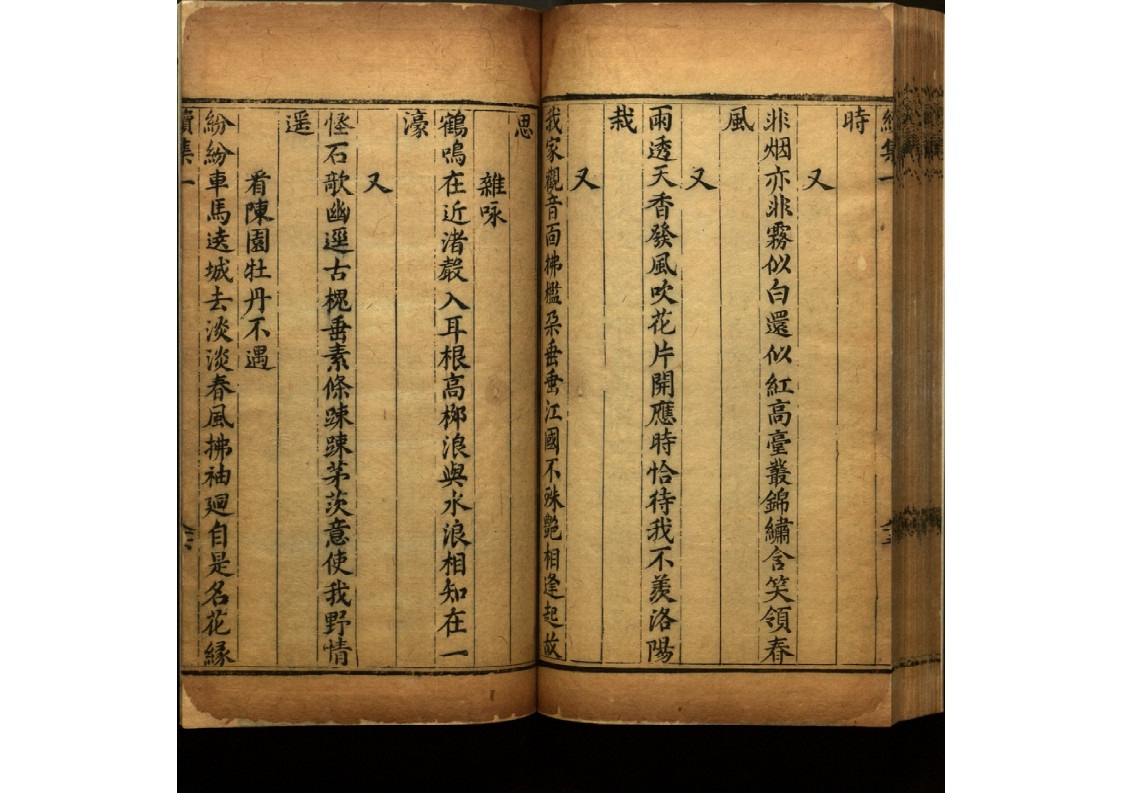 續集一
時
又
非烟亦非霧似白還似紅高臺叢錦繡含笑領春
風
又
雨透天香發風吹花片開應時恰待我不羨洛陽
栽
又
我家觀音面拂檻朶垂垂江國不殊艶相逢起故
思
雜咏
鶴鳴在近渚聲入耳根高梛浪與水浪相知在一
濠
又
怪石歌幽逕古槐垂素條踈踈茅茨意使我野情
遥
看陳園牡丹不遇
紛紛車馬逺城去淡淡春風拂袖廻自是名花縁
續集一